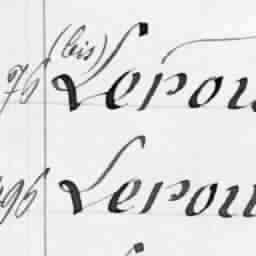 76 (bis) Lerou
96 Lerou